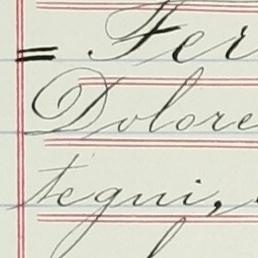 = Fer
Dolore
tegui,